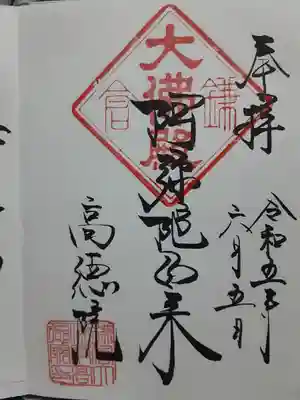 奉拝
令和五年
六月五日
大佛殿
鎌倉
阿弥陀如来
高徳院